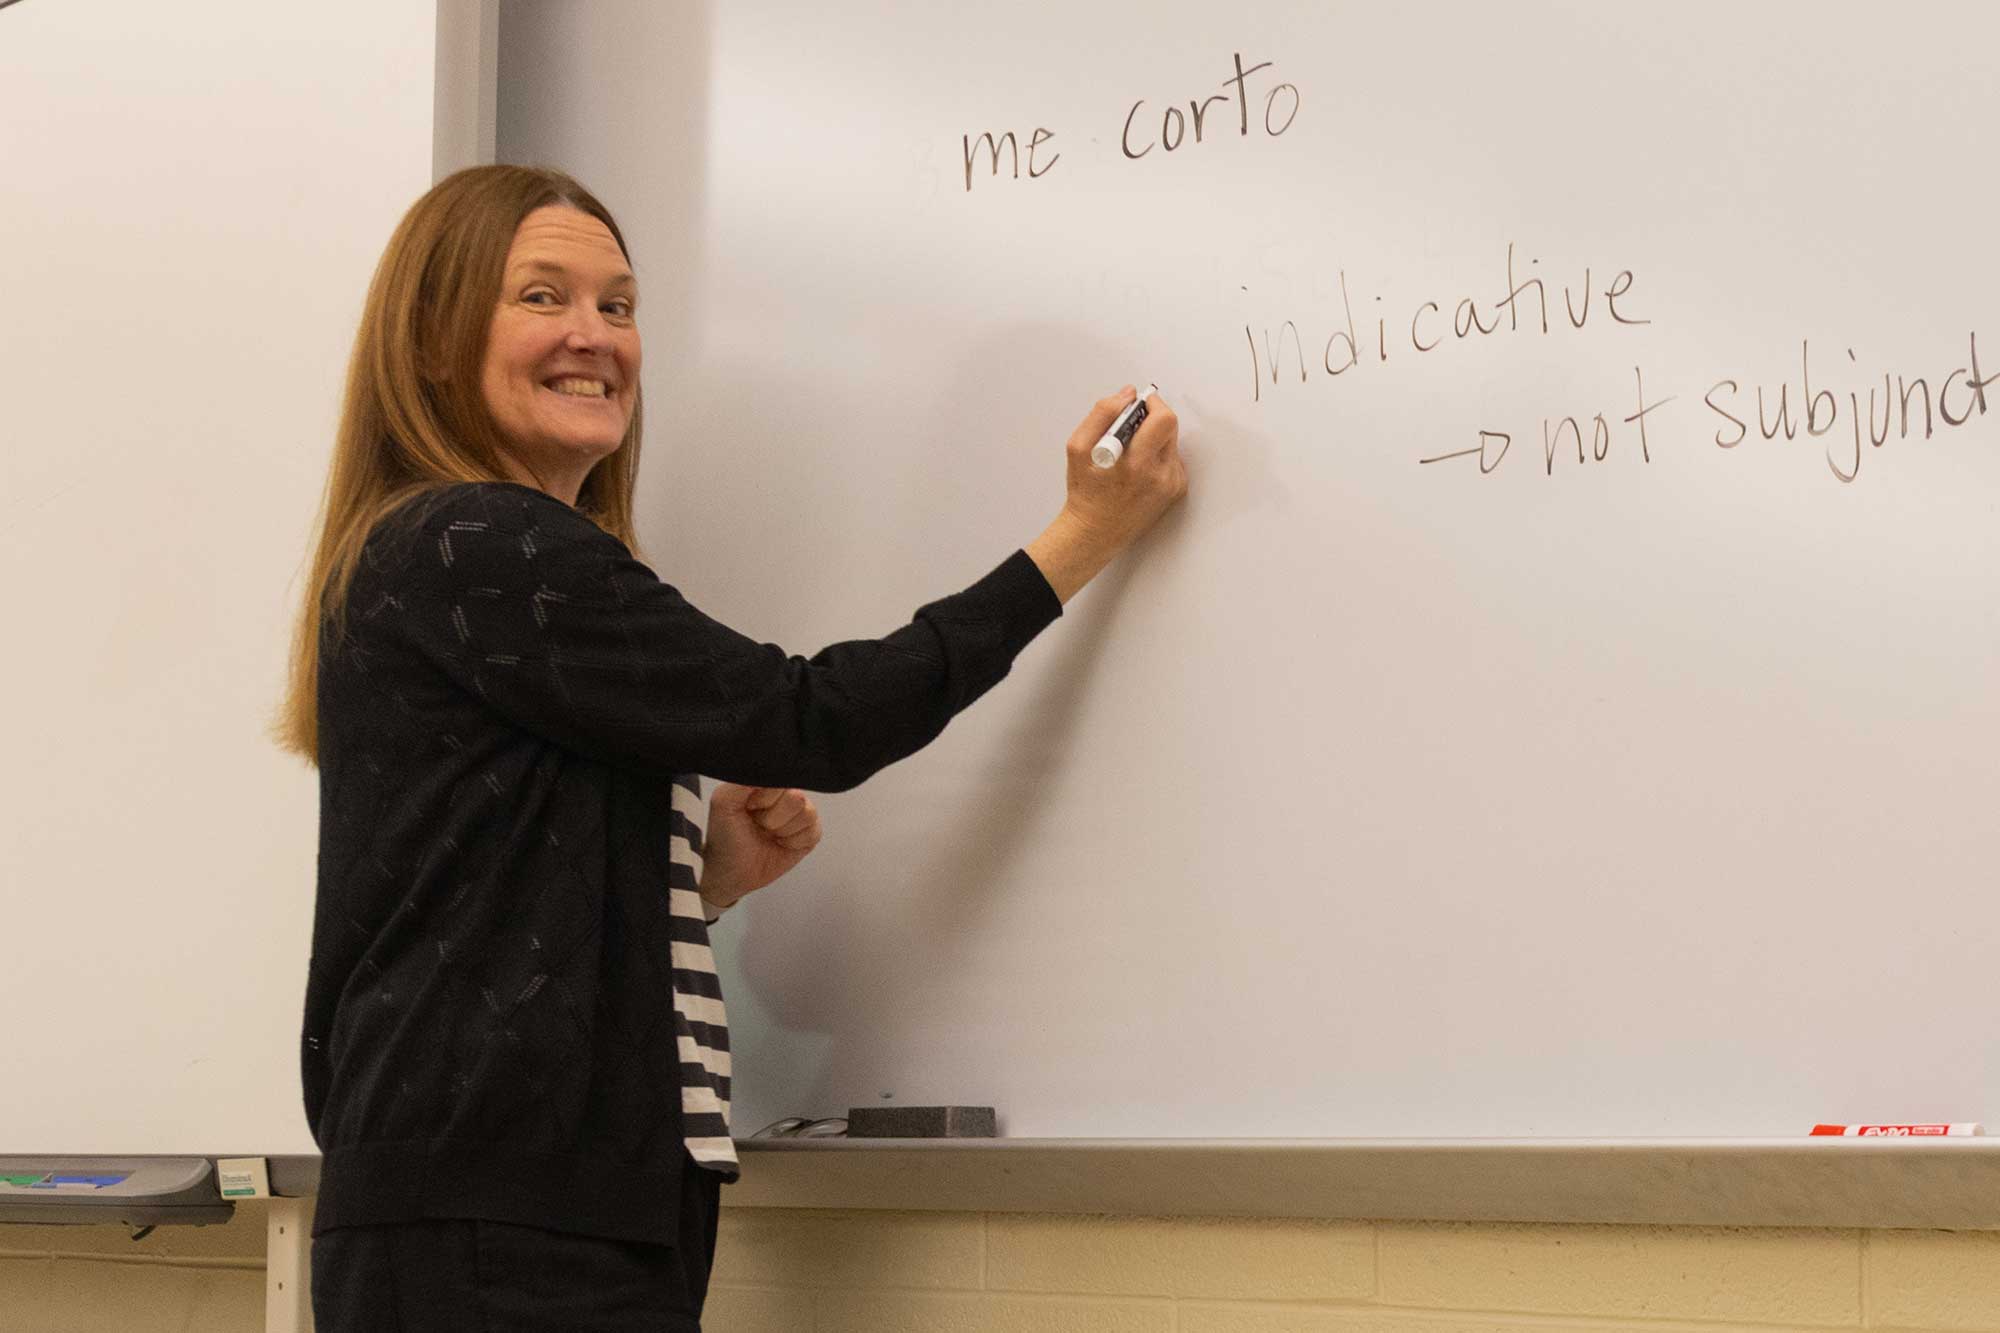 me corto
indicative
→ not subjunct
EXPO